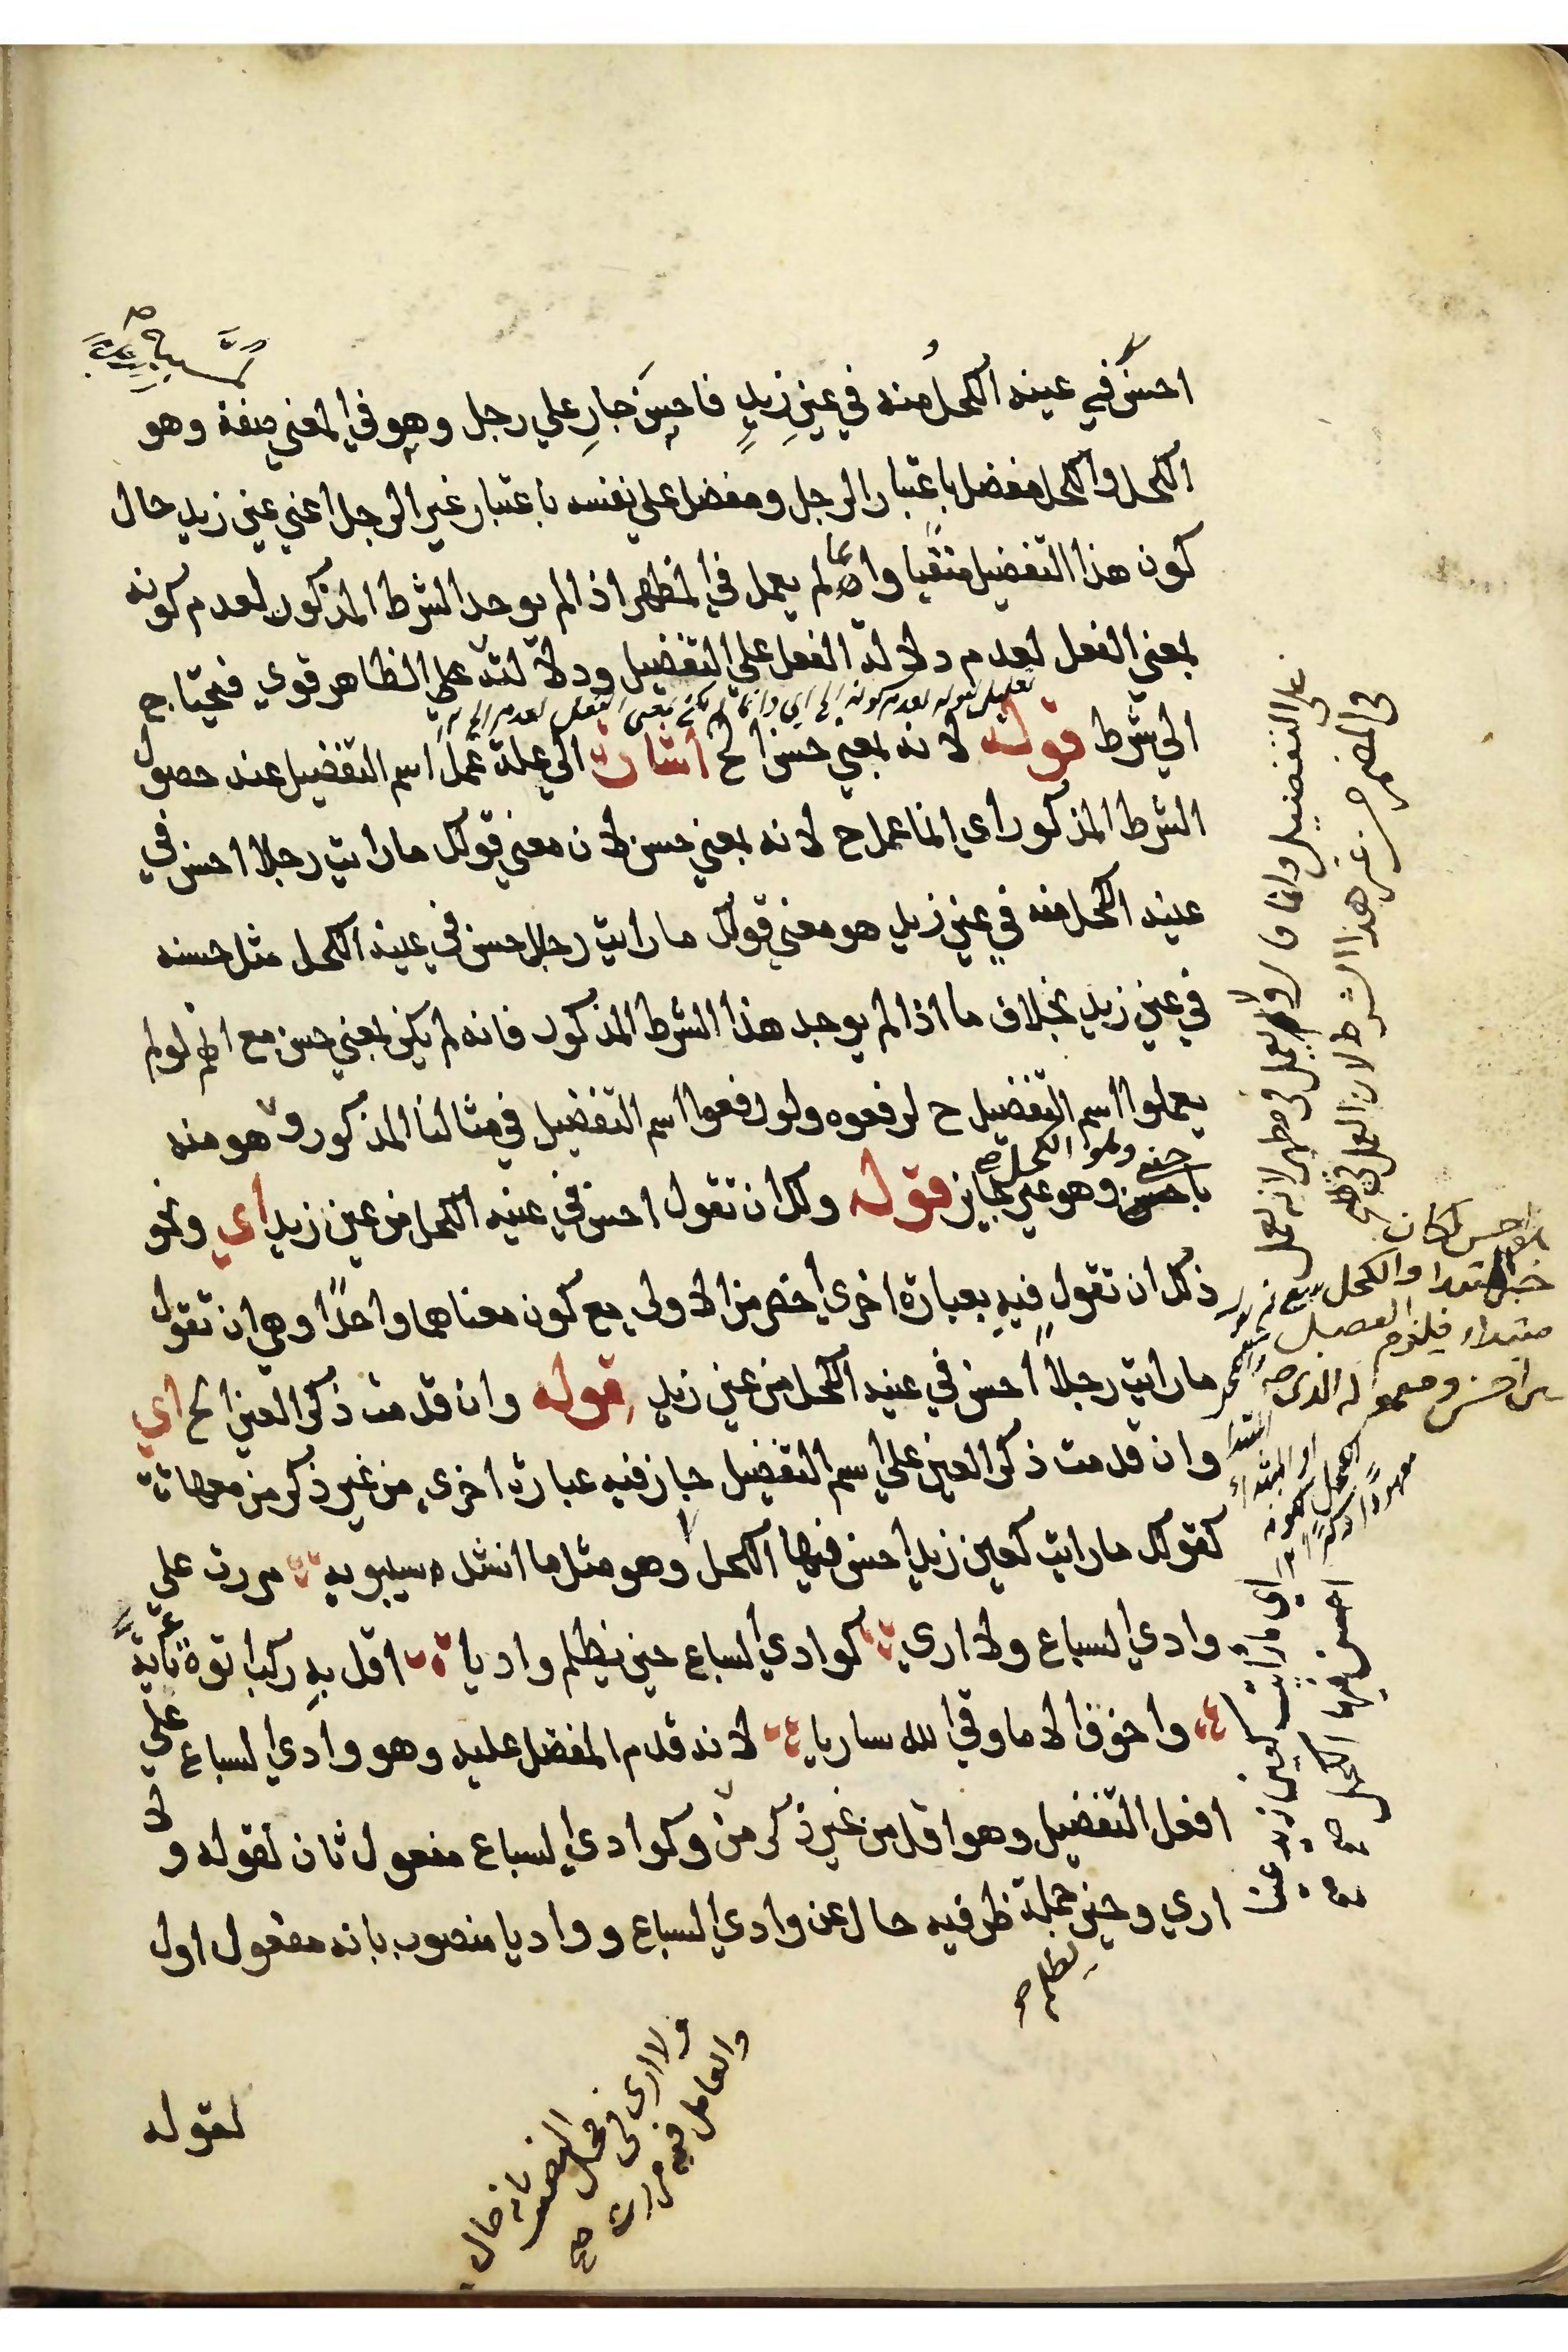 احسن في عينه الكحل منه في عين زيد فاحسن جار علي رجل وهو في المعني صفة وهو
لمسببه
الكحل والكحل مفضل باعتبار الرجل ومفضل علي نفسه باعتبار غير الرجل اعني عين زيد حال
كون هذا التفضيل منفيا وانما لم يعمل في المظهر اذا لم يوجد الشرط المذكور لعدم كونه
بمعني الفعل لعدم دلالة الفعل علي التفضيل ودلالته علي الظاهر قوي فيحتاج
تعليل لقوله لعدم كونه
الي شرط قوله لانه بمعني حسن الخ اشارة الي علة عمل اسم التفضيل عند حصول
الشرط المذكور اي انما عمل ح لانه بمعني حسن لان معني قولك ما رايت رجلا احسن في
عينه الكحل منه في عين زيد هو معني قولك ما رايت رجلا حسن في عينه الكحل مثل حسنه
في عين زيد بخلاف ما اذا لم يوجد هذا الشرط المذكور فانه لم يكن بمعني حسن مع انهم لو لم
يعملوا اسم التفضيل ح لرفعوه ولو رفعوا اسم التفضيل في مثالنا المذكور وهو منه
وهو الكحل صح
باجنبي وهو غير جايز قوله ولك ان تقول احسن في عينه الكحل من عين زيد اي ونحو
ذلك ان تقول فيه بعبارة اخري اخصر من الاولي مع كون معناهما واحدا وهي ان تقول
ما رايت رجلا احسن في عينه الكحل من عين زيد قوله وان قدمت ذكر العين الخ اي
وان قدمت ذكر العين علي اسم التفضيل جاز فيه عبارة اخري من غير ذكر من معها
كقولك ما رايت كعين زيد احسن فيها الكحل وهو مثل ما انشد سيبويه مررت علي
وادي السباع ولا اري كوادي السباع حين يظلم واديا اقل به ركب اتوه تاية
واخوف الا ما وقي الله ساريا لانه قدم المفضل عليه وهو وادي السباع علي
افعل التفضيل وهو اقل من غير ذكر من وكوادي السباع مفعول ثان لقوله ولا
اري وحين يظلم جملة ظرفيه حال عن وادي السباع وواديا منصوب بانه مفعول اول
لقوله
علي التفضيل وانما قال ولا يعمل في مظهر لانه يعمل
في المضمر من غير هذا الشرط لان العمل في
احسن لكان
خبر المبتدا والكحل
مبتداء فيلزم الفصل
بين احسن ومعموله الذي
اي ما رايت كعين زيد عينا
احسن فيها الكحل صح
ولا اري في محل النصب بانه حال
والعامل فيه مررت صح